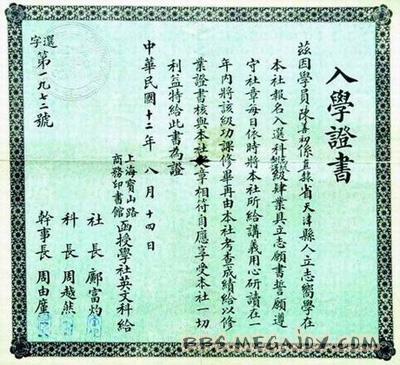 入學證書
茲因學員陳善初係直隸省天津縣人立志嚮學在
本社報名入選科初級肄業具立志願書誓願遵
守社章每日依時將本社所給講義用心研讀在一
年內將該級功課修畢再由本社考查成績給以修
業證書核與本社定章相符自應享受本社一切
利益特給此書為證
中華民國十二年八月十四日
上海寶山路
商務印書館
函授學社英文科給
社長鄺富灼
科長周越然
幹事長周由廑
選字第一九七二號
BBS.MEGAJOY.COM